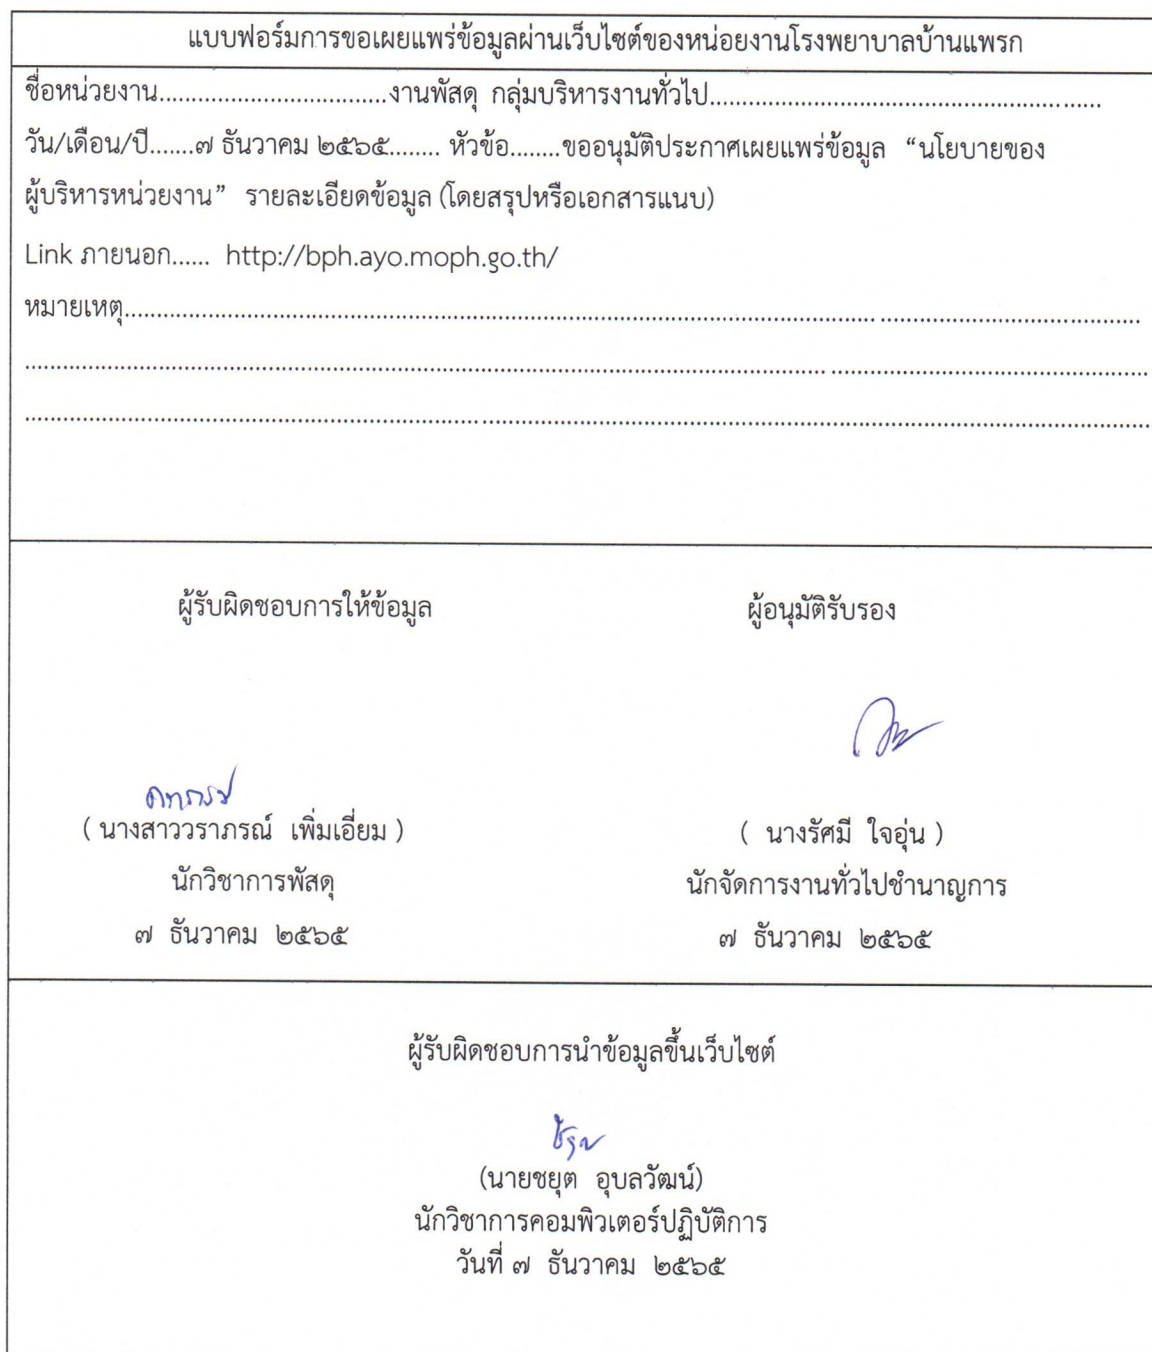 แบบฟอร์มการขอเผยแพร่ข้อมูลผ่านเว็บไซต์ของหน่อยงานโรงพยาบาลบ้านแพรก
ชื่อหน่วยงาน....................................งานพัสดุ กลุ่มบริหารงานทั่วไป..............................................................
วัน/เดือน/ปี.......๗ ธันวาคม ๒๕๖๕........ หัวข้อ........ขออนุมัติประกาศเผยแพร่ข้อมูล “นโยบายของ
ผู้บริหารหน่วยงาน” รายละเอียดข้อมูล (โดยสรุปหรือเอกสารแนบ)
Link ภายนอก...... http://bph.ayo.moph.go.th/
หมายเหตุ................................................................................................................................................................
................................................................................................................................................................................
................................................................................................................................................................................
ผู้รับผิดชอบการให้ข้อมูล ผู้อนุมัติรับรอง
( นางสาววราภรณ์ เพิ่มเอี่ยม ) ( นางรัศมี ใจอุ่น )
นักวิชาการพัสดุ นักจัดการงานทั่วไปชำนาญการ
๗ ธันวาคม ๒๕๖๕ ๗ ธันวาคม ๒๕๖๕
ผู้รับผิดชอบการนำข้อมูลขึ้นเว็บไซต์
(นายชยุต อุบลวัฒน์)
นักวิชาการคอมพิวเตอร์ปฏิบัติการ
วันที่ ๗ ธันวาคม ๒๕๖๕